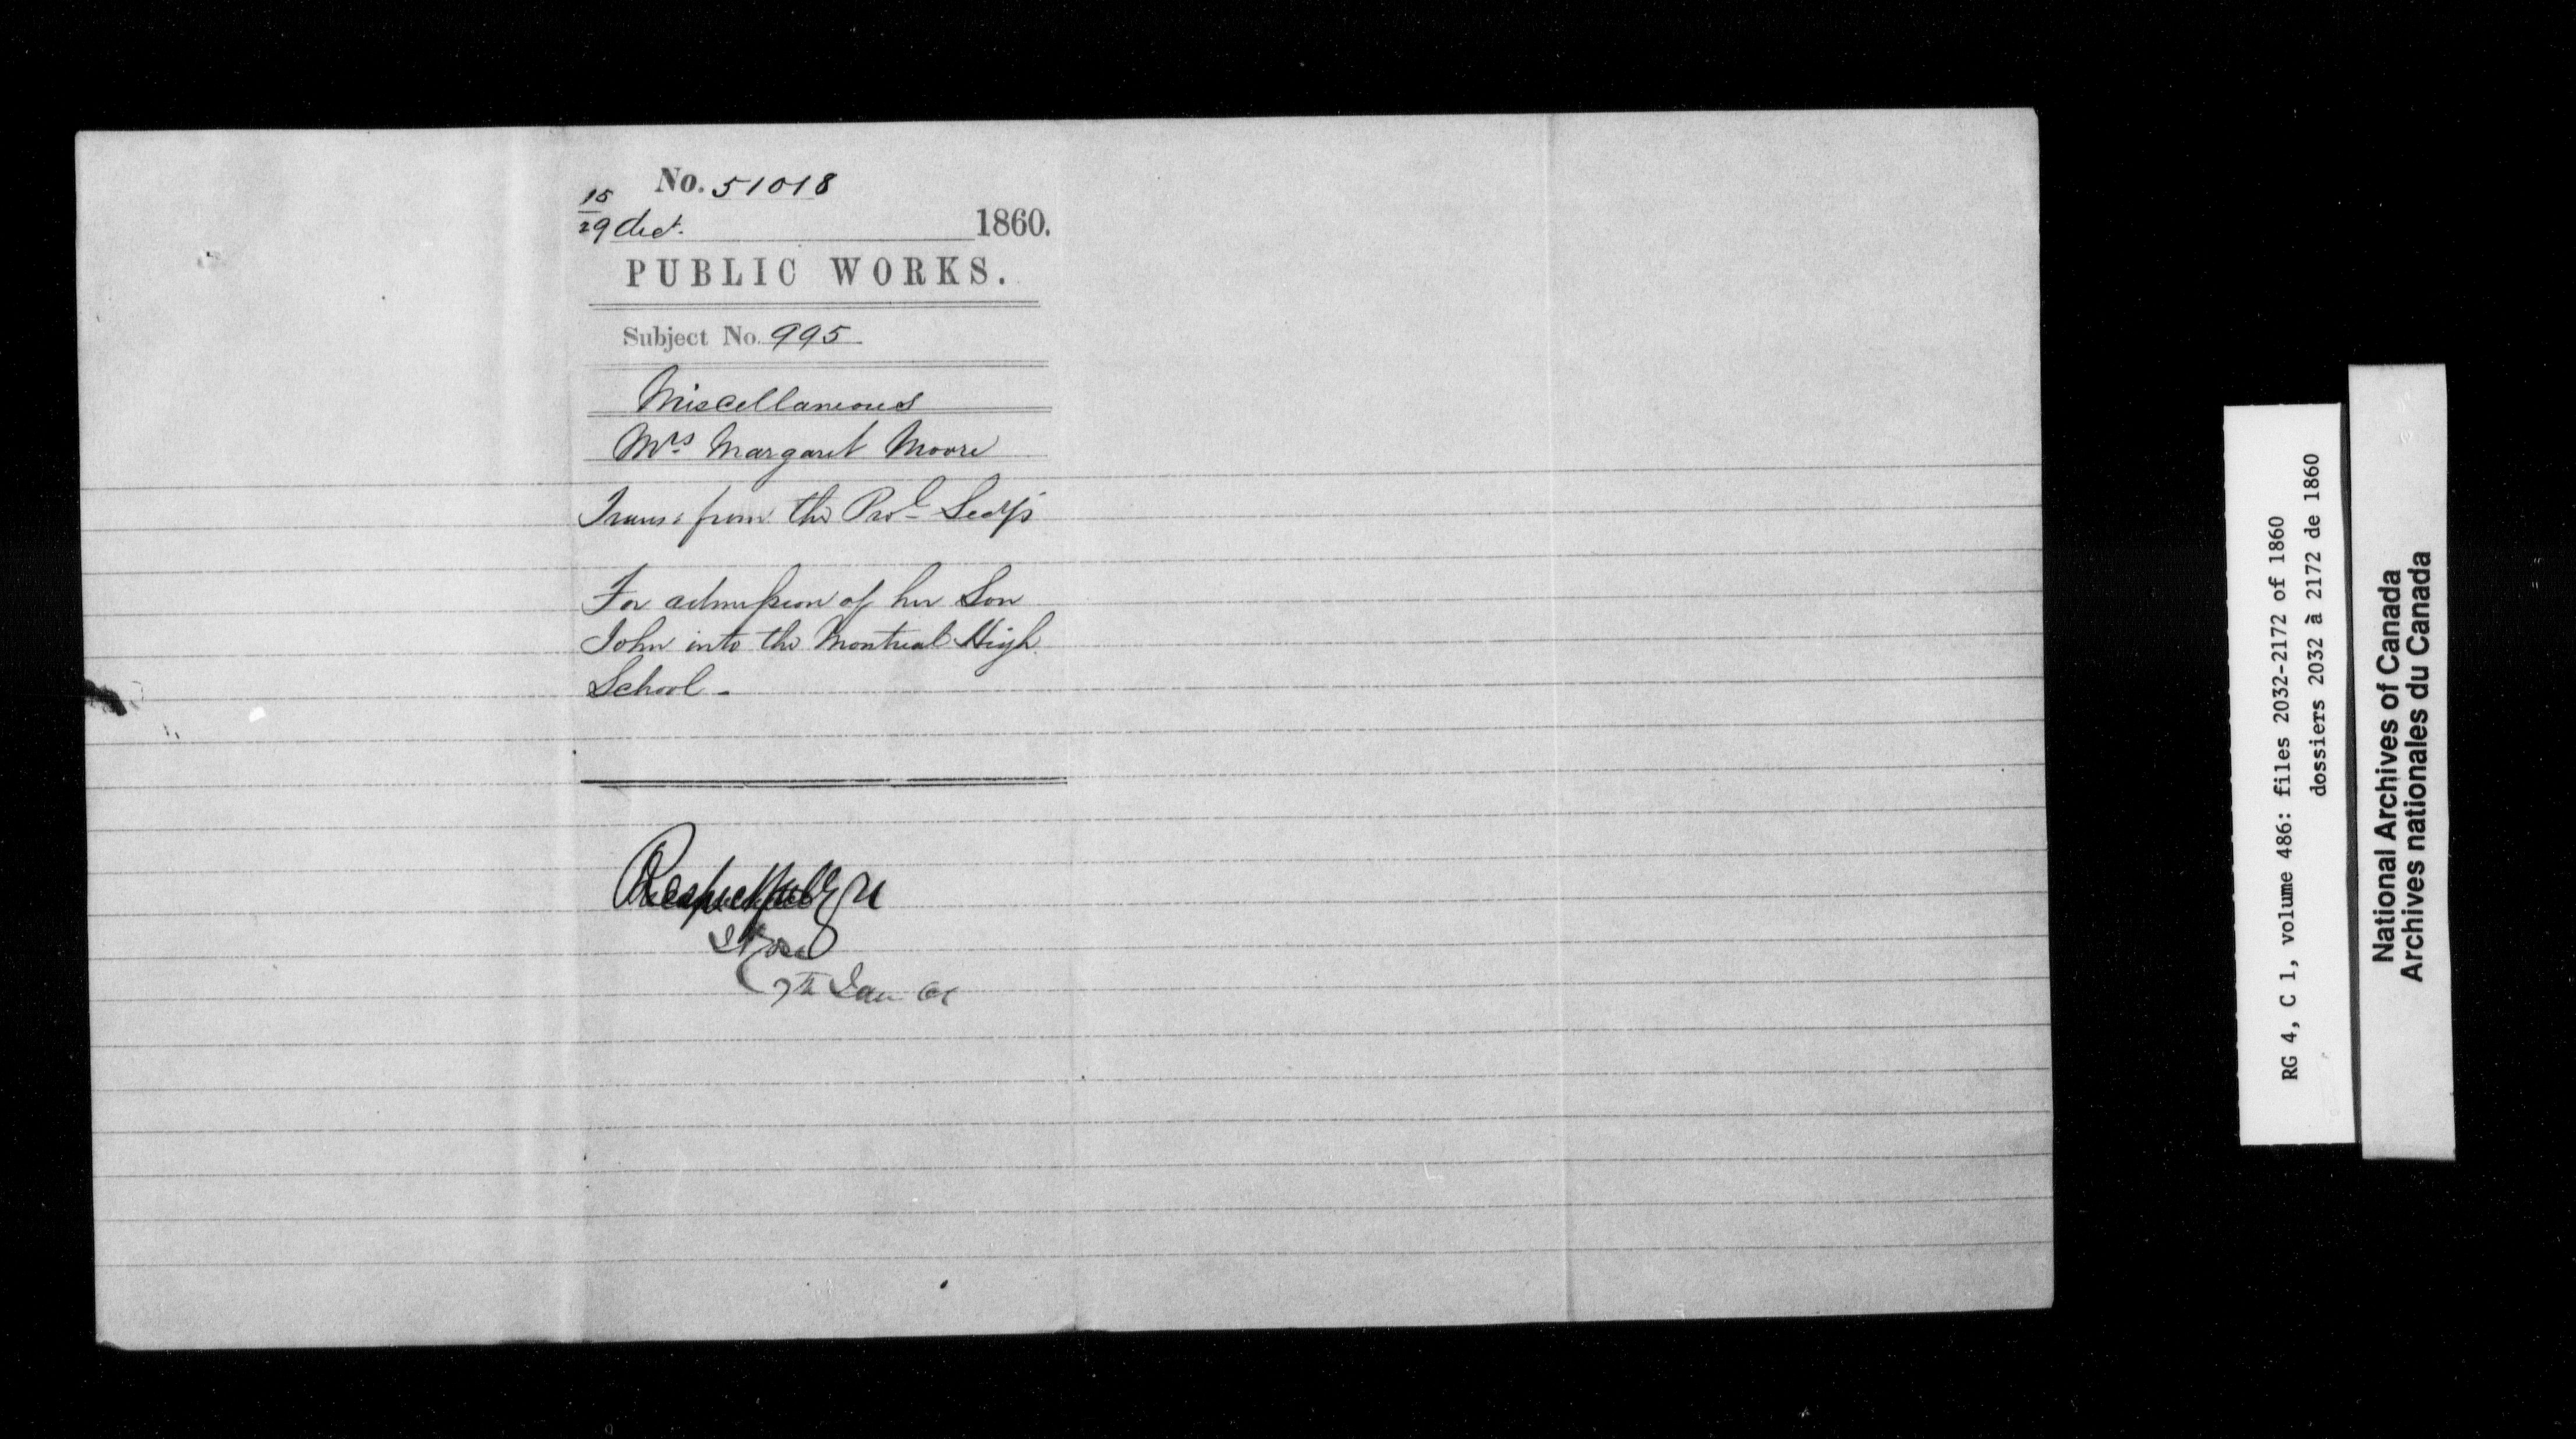 No. 51018
15
29 Dect. 1860.
PUBLIC WORKS.
Subject No. 995
Miscellaneous
Mrs Margaret Moore
Trans: from the Prol Secy's
For admission of her Son
John into the Montreal High
School -
7th Jan 61
RG 4, C 1, volume 486: files 2032-2172 of 1860
dossiers 2032 à 2172 de 1860
National Archives of Canada
Archives nationales du Canada